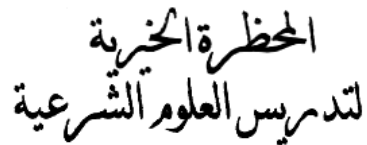 المحظرة الخيرية
لتدريس العلوم الشرعية